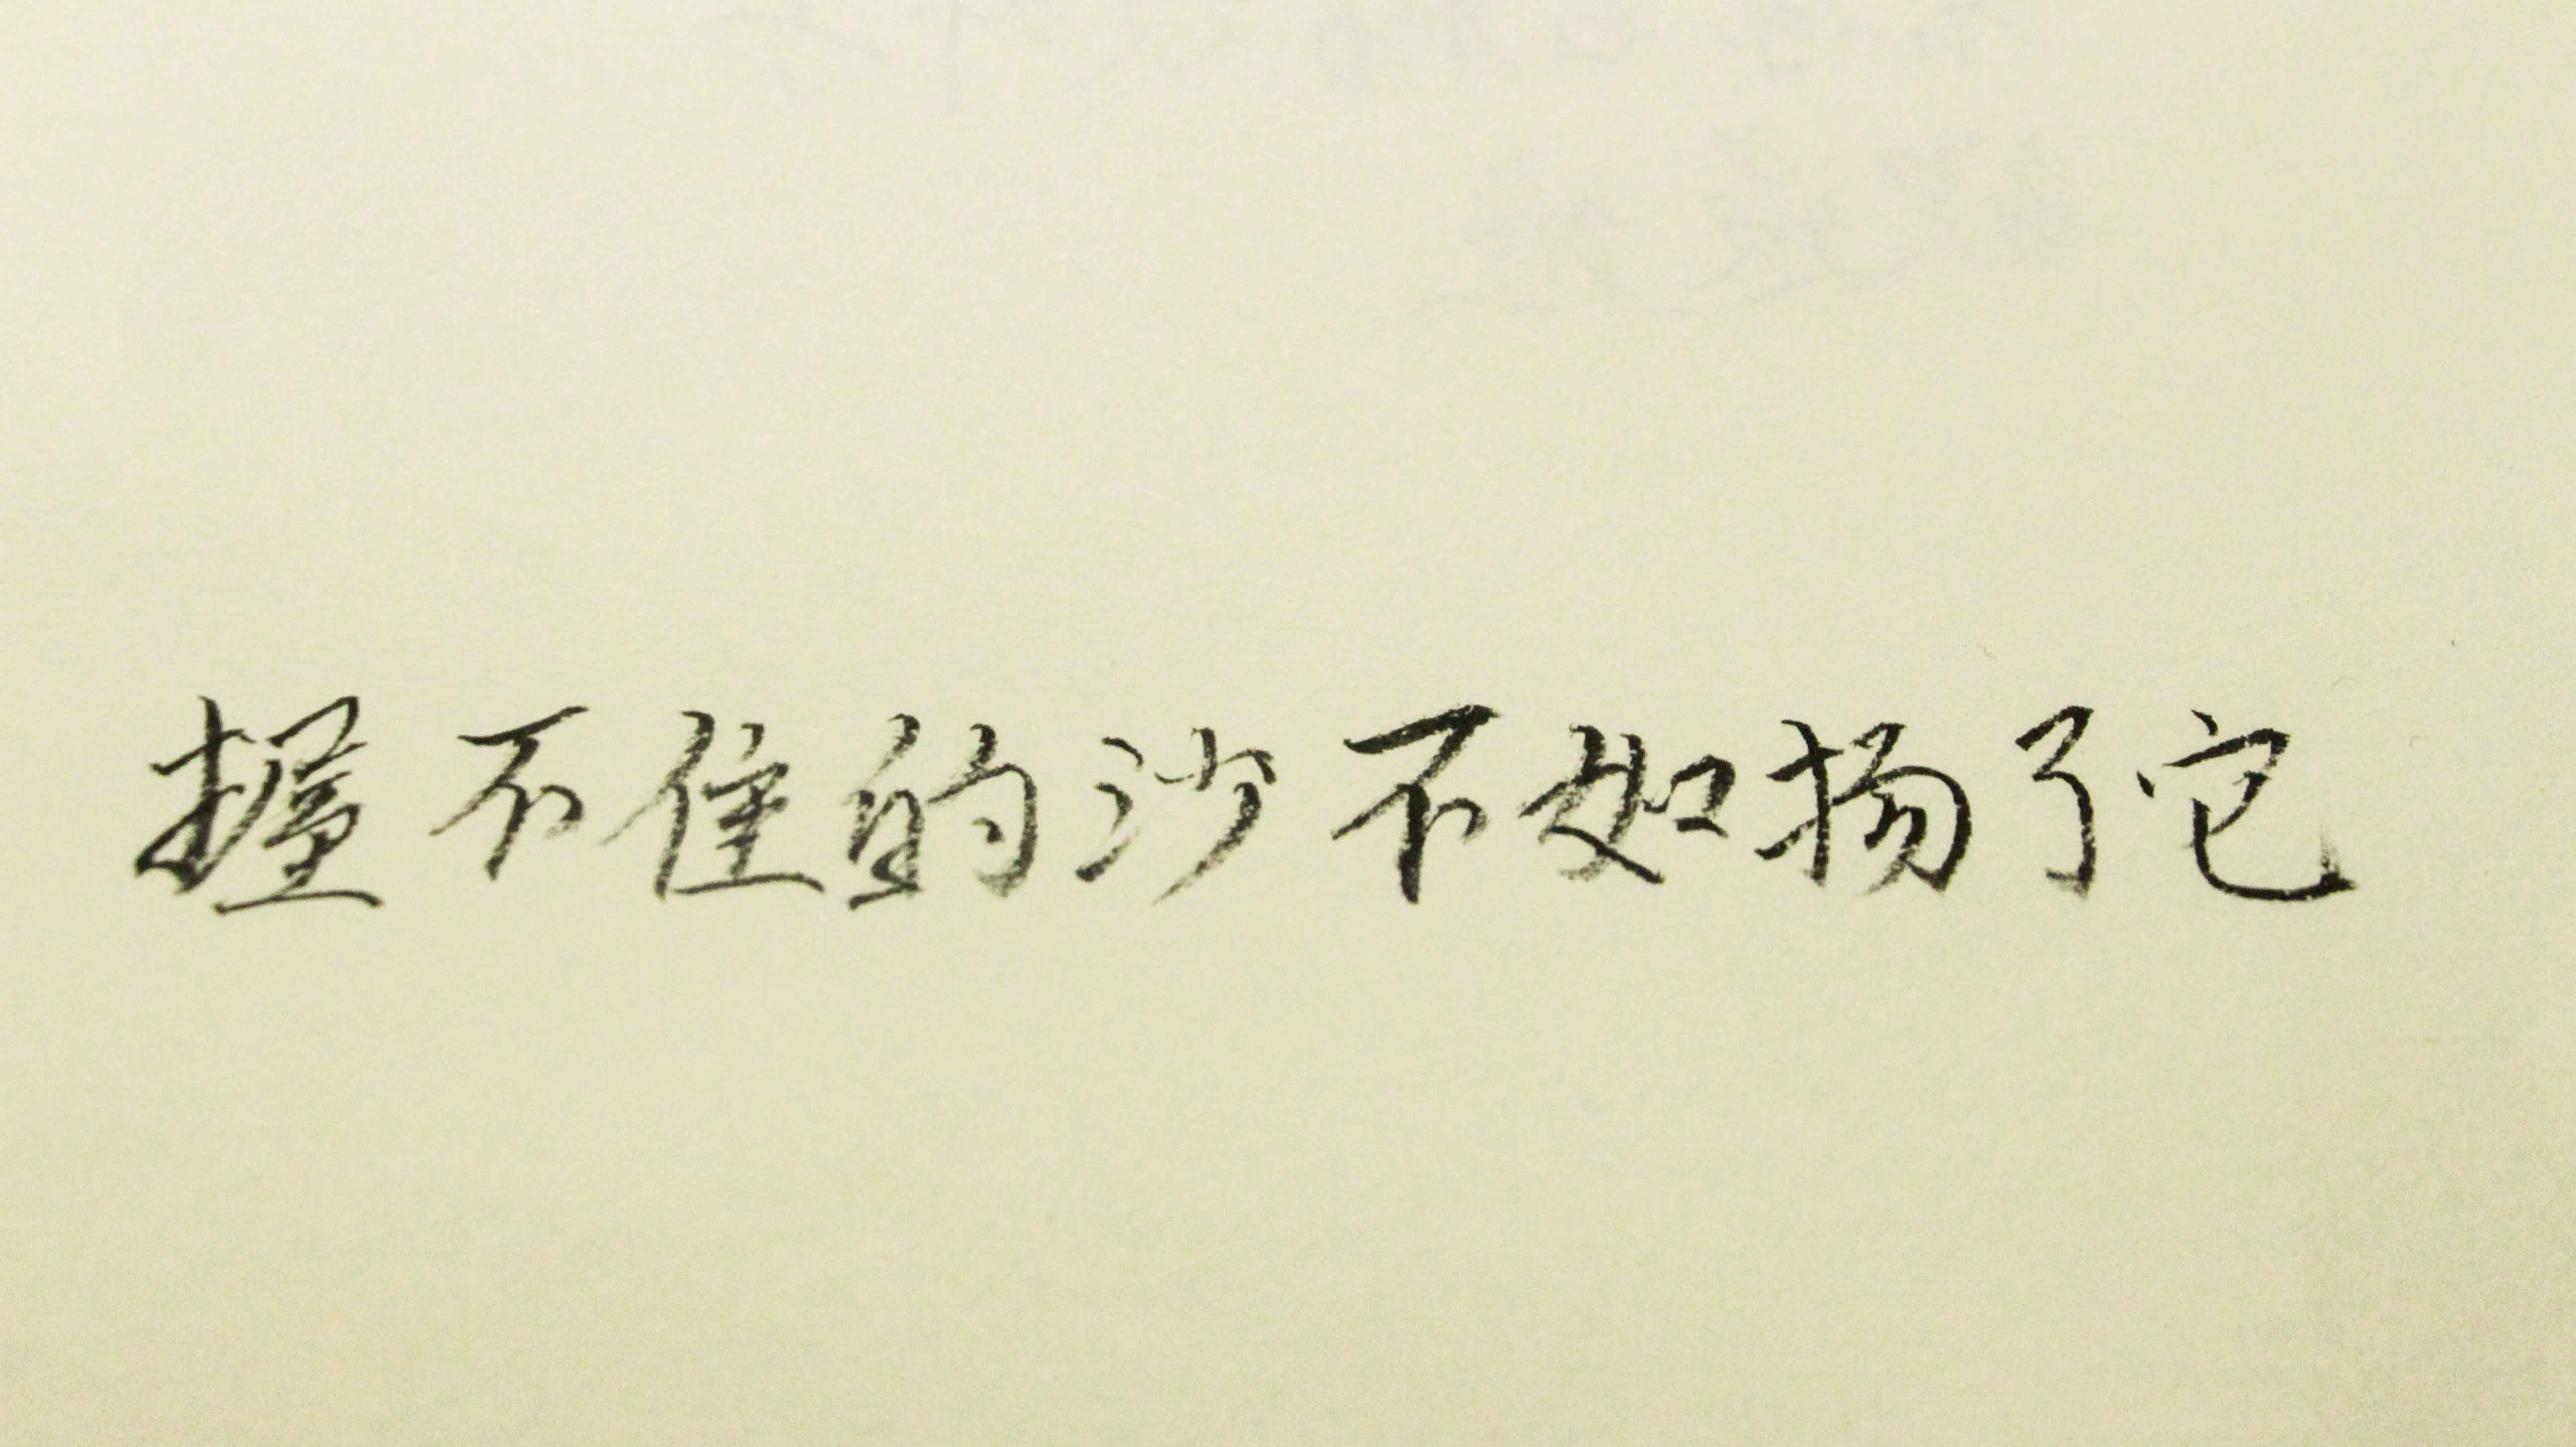 握不住的沙不如扬了它